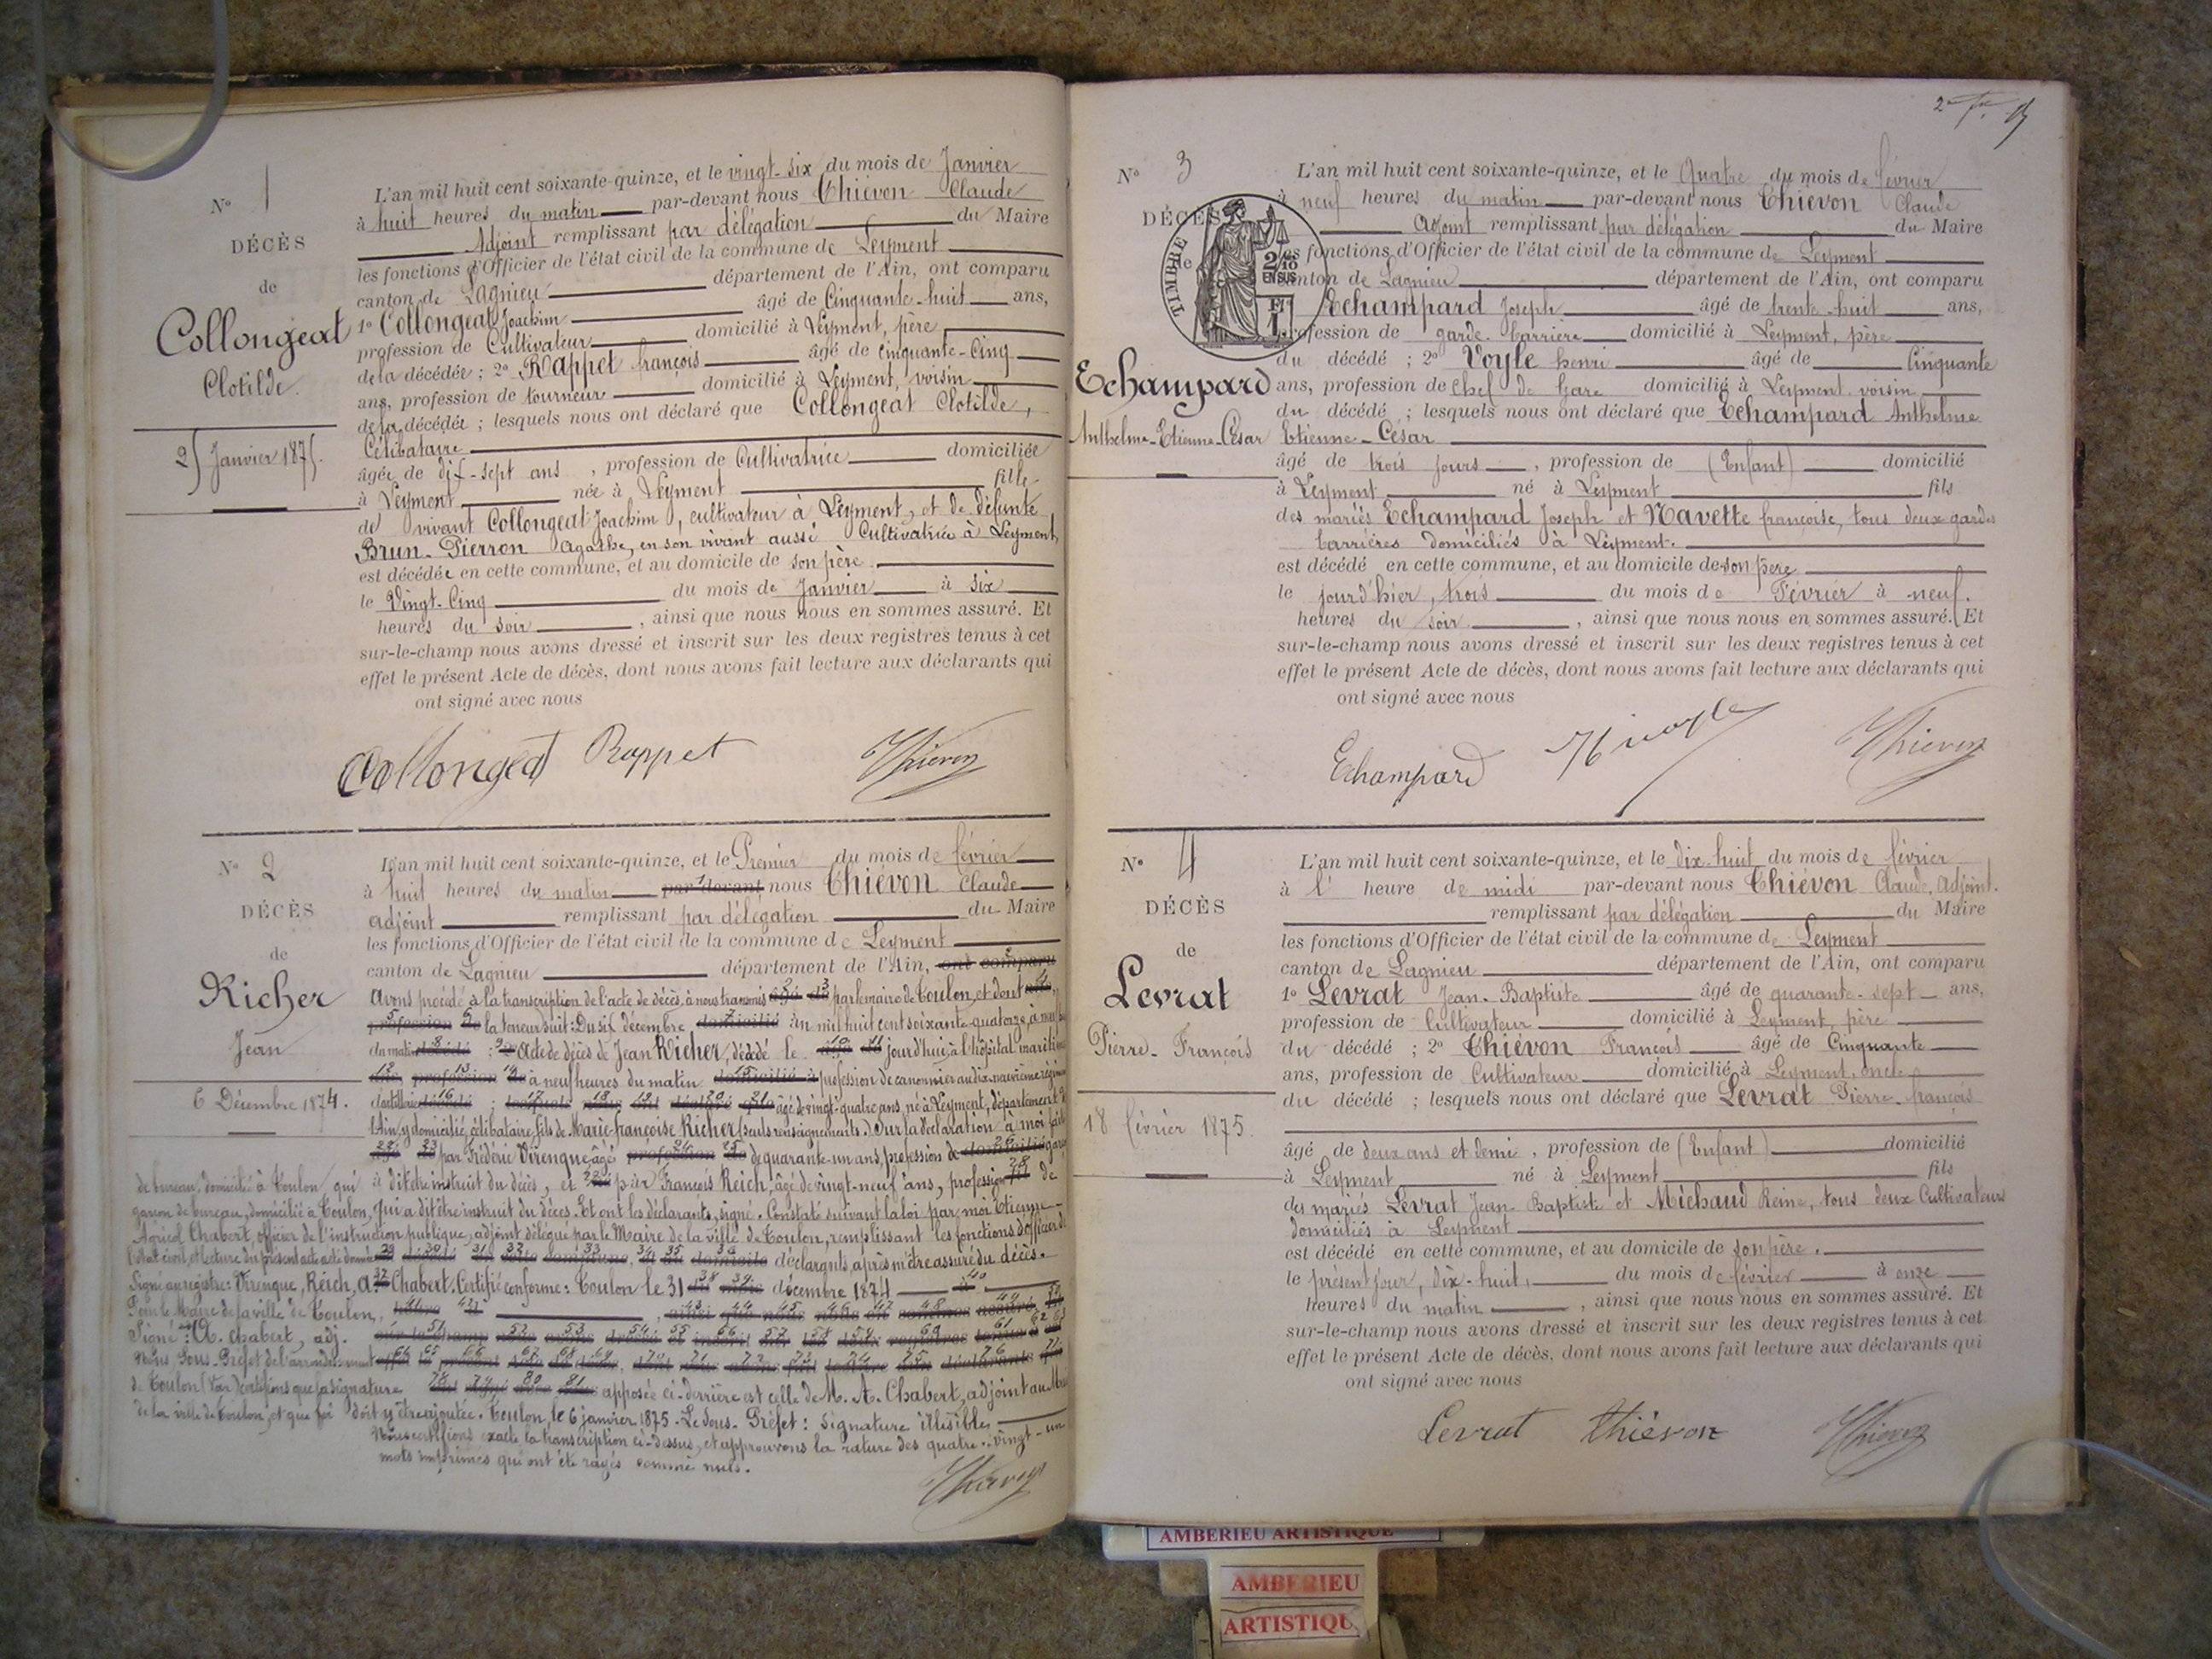 N° 1
DÉCÈS
de
Collongeat
Clotilde
25 Janvier 1875.
L'an mil huit cent soixante-quinze, et le vingt-six du mois de Janvier
à huit heures du matin par-devant nous Thiévon Claude
Adjoint remplissant par délégation du Maire
les fonctions d'Officier de l'état civil de la commune de Leyment
canton de Lagnieu département de l'Ain, ont comparu
1° Collongeat Joachim âgé de Cinquante-huit ans,
profession de Cultivateur domicilié à Leyment, père
de la décédée ; 2° Rappet françois âgé de cinquante-cinq
ans, profession de tourneur domicilié à Leyment, voisin
de la décédée ; lesquels nous ont déclaré que Collongeat Clotilde,
Célibataire
âgée de dix-sept ans , profession de Cultivatrice domiciliée
à Leyment née à Leyment fille
de vivant Collongeat Joachim, cultivateur à Leyment, et de défunte
Brun-Pierron Agathe, en son vivant aussi Cultivatrice à Leyment,
est décédée en cette commune, et au domicile de son père
le Vingt-Cinq du mois de Janvier à six
heures du soir , ainsi que nous nous en sommes assuré. Et
sur-le-champ nous avons dressé et inscrit sur les deux registres tenus à cet
effet le présent Acte de décès, dont nous avons fait lecture aux déclarants qui
ont signé avec nous
Collongeat Rappet Thiévon
N° 2
DÉCÈS
de
Richer
Jean
6 Décembre 1874.
L'an mil huit cent soixante-quinze, et le Premier du mois de février
à huit heures du matin par devant nous Thiévon Claude
adjoint remplissant par délégation du Maire
les fonctions d'Officier de l'état civil de la commune de Leyment
canton de Lagnieu département de l'Ain, ont comparu
Avons procédé à la transcription de l'acte de décès, à nous transmis par le maire de Toulon, et dont
la teneur suit: Du six décembre an mil huit cent soixante-quatorze, à neuf
du matin Acte de décès de Jean Richer, décédé le jourd'hui à l'hôpital maritime
à neuf heures du matin profession de canonnier au dix-neuvième régiment
d'artillerie âgé de vingt-quatre ans, né à Leyment, département de
l'Ain, y domicilié, célibataire, fils de Marie-françoise Richer (seuls renseignements.) Sur la déclaration à moi faite
par Frédéric Virenque âgé de quarante-un ans, profession de garçon
de bureau, domicilié à Toulon qui a dit être instruit du décès, et par François Reich, âgé de vingt-neuf ans, profession de
garçon de bureau, domicilié à Toulon, qui a dit être instruit du décès. Et ont les déclarants, signé. Constaté suivant la loi par moi Etienne
Agricol Chabert, officier de l'instruction publique, adjoint délégué par le Maire de la ville de Toulon, remplissant les fonctions d'officier de
l'état civil, et lecture du présent acte a été donnée déclarants, après m'être assuré du décès.
Signé au registre: Virenque, Reich, A. Chabert. Certifié conforme: Toulon le 31 décembre 1874
Pour le Maire de la ville de Toulon,
Signé: A. Chabert, adj.
Nous Sous-Préfet de l'arrondissement
de Toulon (Var) certifions que la signature apposée ci-derrière est celle de M. A. Chabert, adjoint au Maire
de la ville de Toulon, et que foi doit y être ajoutée. Toulon, le 6 janvier 1875. Le Sous-Préfet: signature illisible
Nous certifions exacte la transcription ci-dessus, et approuvons la rature des quatre-vingt-un
mots imprimés qui ont été rayés comme nuls.
Thiévon
N° 3
DÉCÈS
de
Echampard
Anthelme-Etienne-César
TIMBRE
2/10
EN SUS
L'an mil huit cent soixante-quinze, et le Quatre du mois de février
à neuf heures du matin par-devant nous Thiévon Claude
Adjoint remplissant par délégation du Maire
les fonctions d'Officier de l'état civil de la commune de Leyment
canton de Lagnieu département de l'Ain, ont comparu
1° Echampard Joseph âgé de trente-huit ans,
profession de garde-barrière domicilié à Leyment, père
du décédé ; 2° Voyle henri âgé de Cinquante
ans, profession de Chef de Gare domicilié à Leyment, voisin
du décédé ; lesquels nous ont déclaré que Echampard Anthelme
Etienne-César
âgé de trois jours , profession de (Enfant) domicilié
à Leyment né à Leyment fils
des mariés Echampard Joseph et Navette françoise, tous deux gardes
barrières domiciliés à Leyment.
est décédé en cette commune, et au domicile de son père
le jourd'hier, trois du mois de Février à neuf
heures du soir , ainsi que nous nous en sommes assuré. Et
sur-le-champ nous avons dressé et inscrit sur les deux registres tenus à cet
effet le présent Acte de décès, dont nous avons fait lecture aux déclarants qui
ont signé avec nous
Echampard H. voyle Thiévon
N° 4
DÉCÈS
de
Levrat
Pierre-François
18 février 1875.
L'an mil huit cent soixante-quinze, et le dix-huit du mois de février
à l' heure de midi par-devant nous Thiévon Claude, Adjoint.
remplissant par délégation du Maire
les fonctions d'Officier de l'état civil de la commune de Leyment
canton de Lagnieu département de l'Ain, ont comparu
1° Levrat Jean-Baptiste âgé de quarante-sept ans,
profession de Cultivateur domicilié à Leyment, père
du décédé ; 2° Thiévon François âgé de Cinquante
ans, profession de Cultivateur domicilié à Leyment, oncle
du décédé ; lesquels nous ont déclaré que Levrat Pierre-françois
âgé de deux ans et demi , profession de (Enfant) domicilié
à Leyment né à Leyment fils
des mariés Levrat Jean-Baptiste et Michaud Reine, tous deux Cultivateurs
domiciliés à Leyment
est décédé en cette commune, et au domicile de son père.
le présent jour, dix-huit, du mois de février à onze
heures du matin , ainsi que nous nous en sommes assuré. Et
sur-le-champ nous avons dressé et inscrit sur les deux registres tenus à cet
effet le présent Acte de décès, dont nous avons fait lecture aux déclarants qui
ont signé avec nous
Levrat thiévon Thiévon
AMBERIEU ARTISTIQUE
AMBERIEU
ARTISTIQU